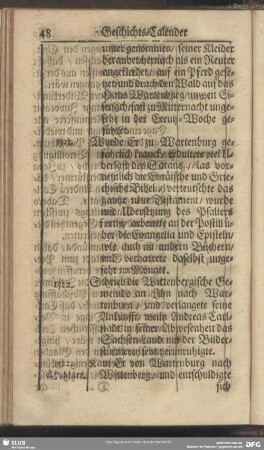 48 Geschichts-Calender
unter genommen / seiner Kleider
beraubet / hernach als ein Reuter
angekleidet / auf ein Pferd gese-
tzet und durch den Wald auf das
Hauß Wartenburg / unweit Ei-
senach / fast zu Mitternacht unge-
fehr in der Creutz-Woche ge-
führet.
1521. Wurde Er zu Wartenburg ge-
fährlich kranck / erduldete viel U-
berlast des Satans / las
die Ebräische und Grie-
chische Bibel / verteutschte das
gantze neue Testament / wurde
mit Ubersetzung des Psalters
fertig / arbeitete an der Postill ü-
ber die Evangelia und Episteln /
wie auch an andern Büchern /
und verharrete daselbst unge-
fehr 10. Monate.
1522. Schrieb die Wittenbergische Ge-
meinde an Ihn nach War-
tenburg / und verlangete seine
Ankunfft / weiln Andreas Carl-
stadt in seiner Abwesenheit das
Sachsen-Land mit der Bilder-
stürmerey sehr verunruhigte.
1522. Kam Er von Wartenburg nach
Wittenberg / und entschuldigte
sich
SLUB
DFG